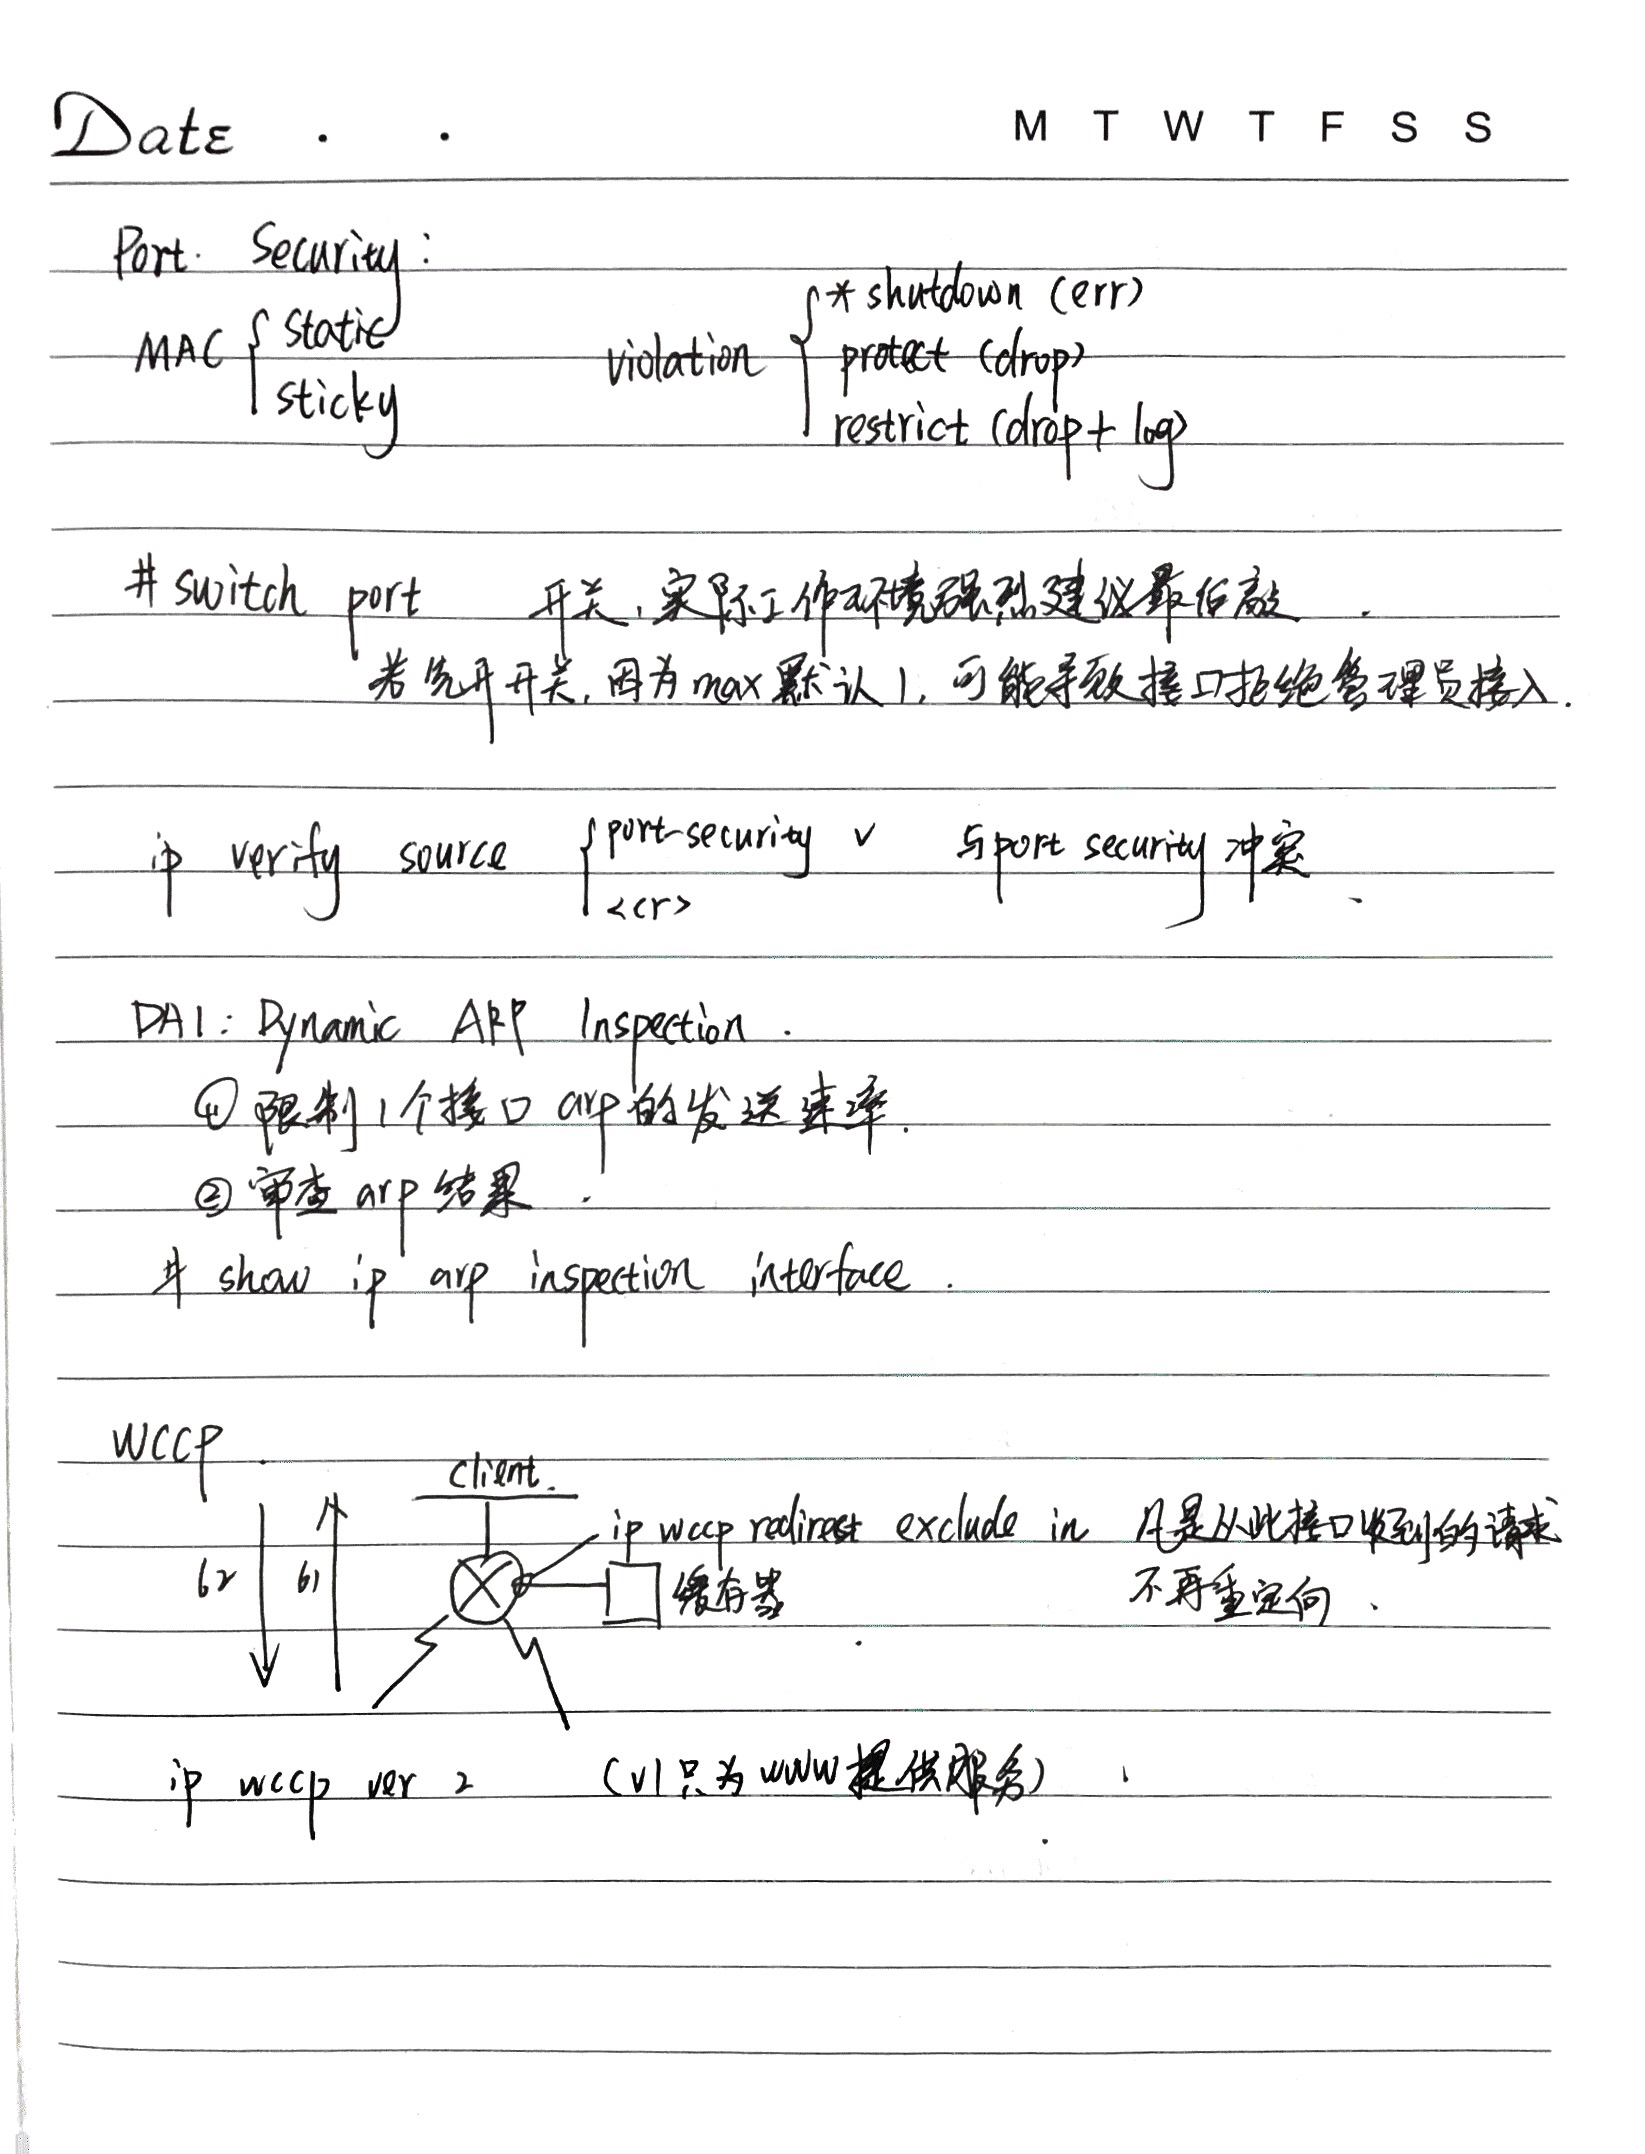 Date . .    M T W T F S S
Port. Security:
MAC { static  violation { * shutdown (err)
sticky  protect (drop)
restrict (drop + log)
# switch port  开关,实际工作环境强烈建议最后敲.
若先开开关,因为max默认1,可能导致接口拒绝管理员接入.
ip verify source { port-security √  与port security冲突.
<cr>
DAI: Dynamic ARP Inspection.
① 限制1个接口arp的发送速率.
② 审查arp结果.
# show ip arp inspection interface.
WCCP.
client.
ip wccp redirest exclude in  凡是从此接口收到的请求
62  61  缓存器  不再重定向.
ip wccp ver 2  (v1只为www提供服务)